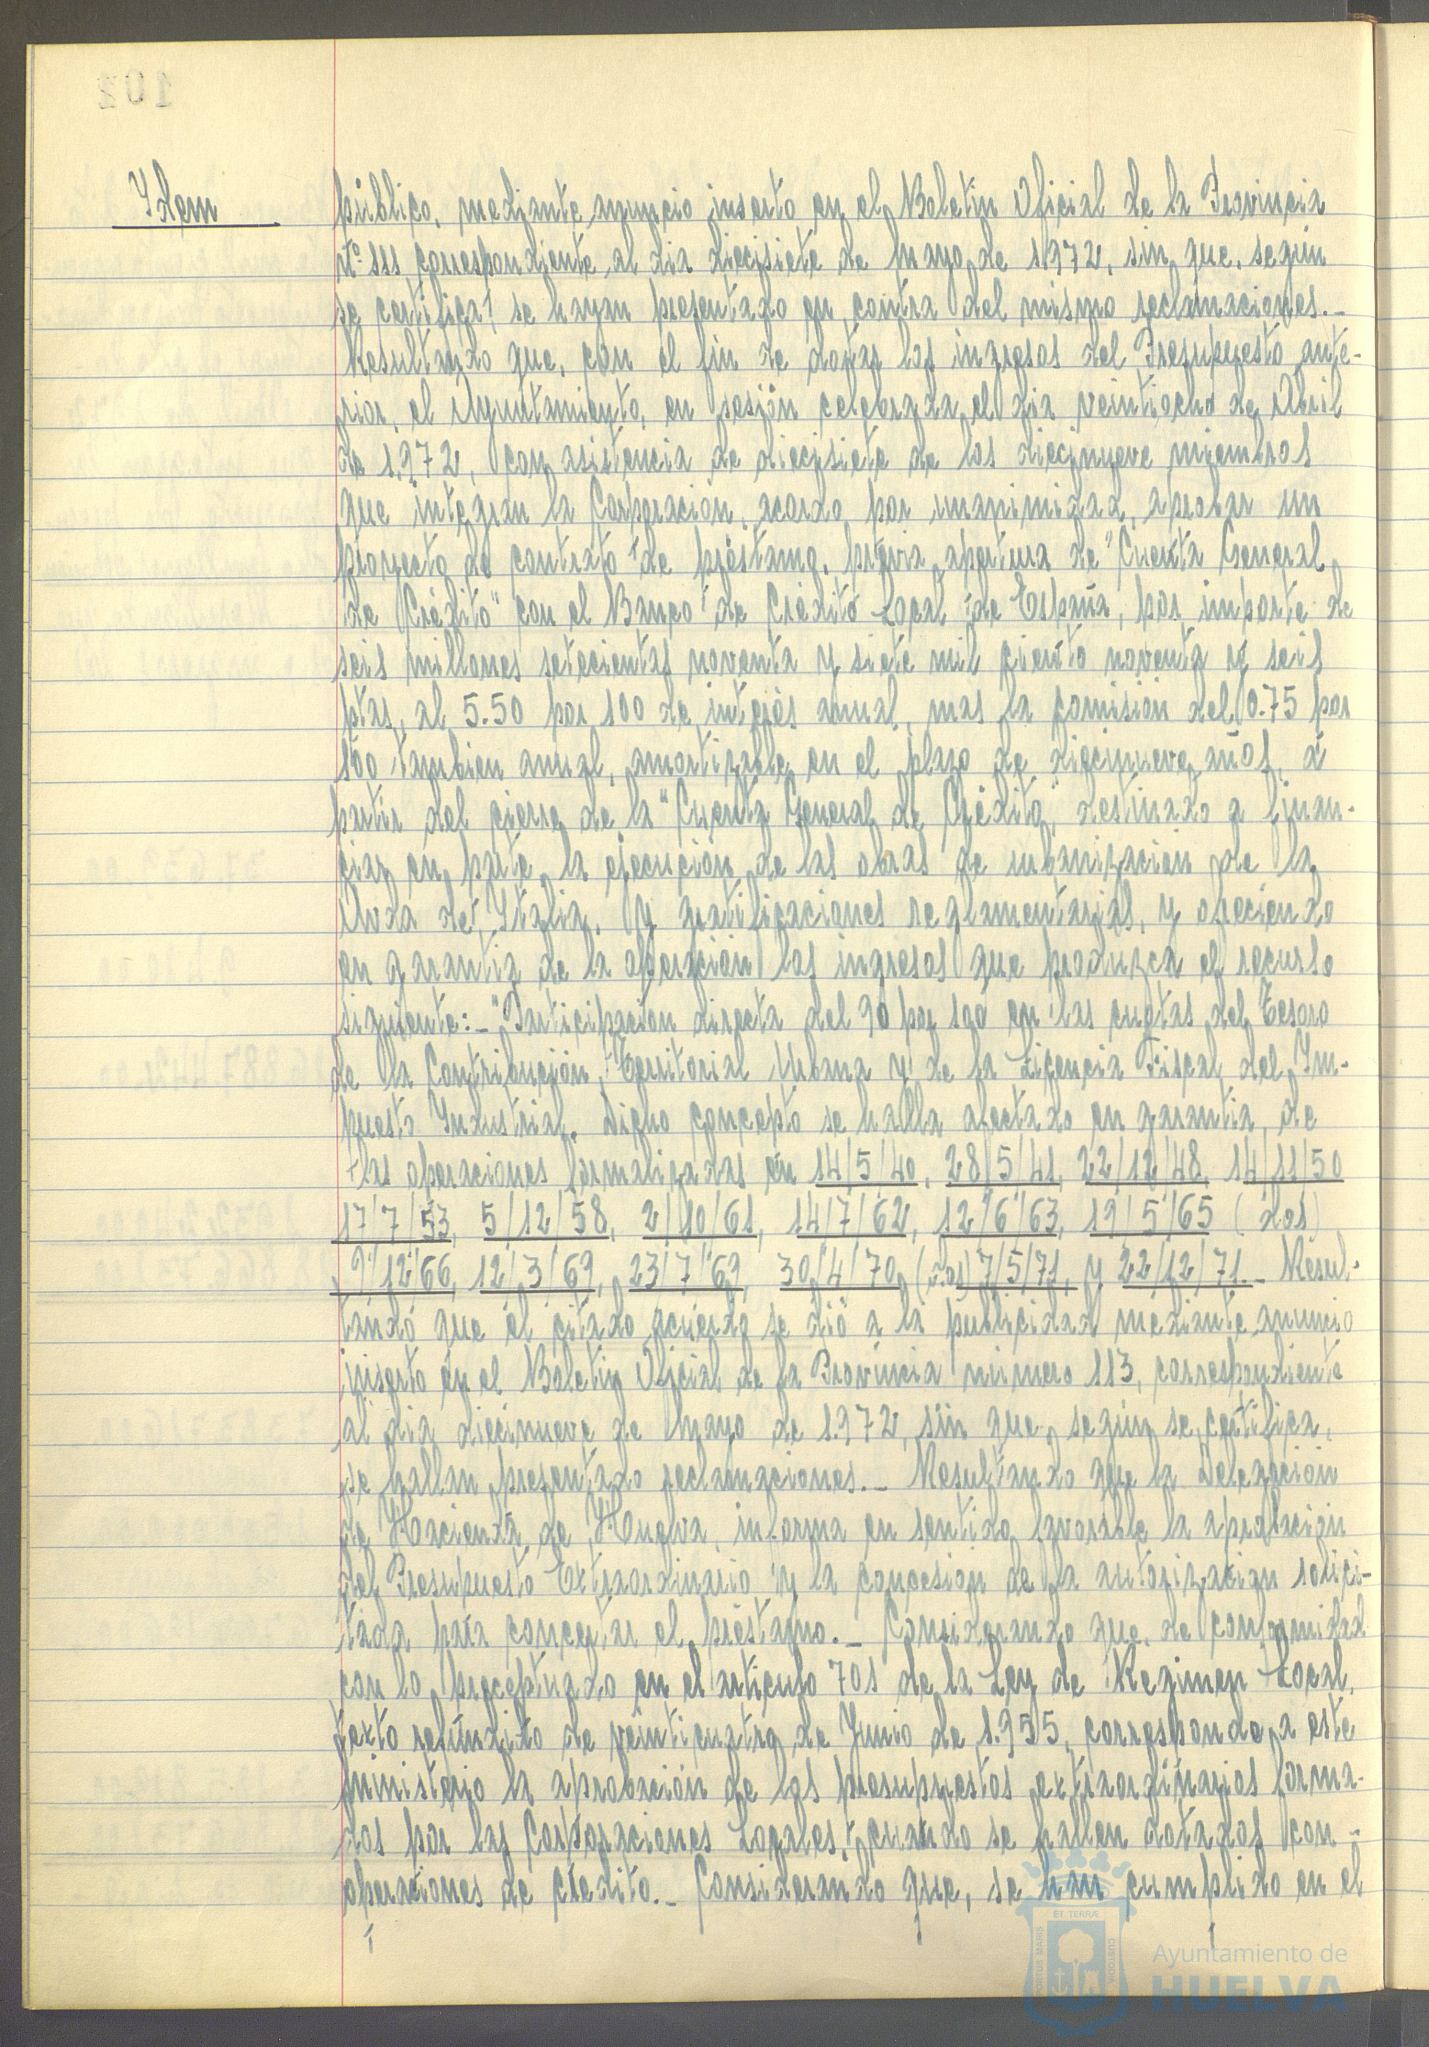 102
Ydem
público, mediante anuncio inserto en el Boletin Oficial de la Provincia
nº. 111 correspondiente al dia diecisiete de Mayo de 1.972, sin que, según
se certifica, se hayan presentado en contra del mismo reclamaciones.-
Resultando que, con el fin de dotar los ingresos del Presupuesto ante-
rior, el Ayuntamiento, en sesión celebrada el dia veintiocho de Abril
de 1.972, con asistencia de diecisiete de los diecinueve miembros
que integran la Corporación, acordo por unanimidad, aprobar un
proyecto de contrato de préstamo, previa apertura de "Cuenta General
de Crédito" con el Banco de Crédito Local de España, por importe de
seis millones setecientas noventa y siete mil ciento noventa y seis
ptas, al 5.50 por 100 de interés anual, mas la comisión del 0.75 por
100 tambien anual, amortizable en el plazo de diecinueve años, a
partir del cierre de la "Cuenta General de Crédito", destinado a finan-
ciar en parte la ejecución de las obras de urbanizacion de la
Avda de Ytalia, y gratificaciones reglamentarias, y ofreciendo
en garantia de la operación los ingresos que produzca el recurso
siguiente:- "Participación directa del 90 por 100 en las cuotas del Tesoro
de la Contribución Territorial Urbana y de la Licencia Fiscal del Im-
puesto Industrial. Dicho concepto se halla afectado en garantia de
las operaciones formalizadas en 14/5/40, 28/5/41, 22/12/48, 14/11/50
17/7/53, 5/12/58, 2/10/61, 14/7/62, 12/6/63, 19/5/65 (dos)
9/12/66, 12/3/69, 23/7/69, 30/4/70 (dos) 7/5/71, y 22/12/71.- Resul-
tando que el citado acuerdo se dió a la publicidad mediante anuncio
inserto en el Boletin Oficial de la Provincia número 113, correspondiente
al dia diecinueve de Mayo de 1.972, sin que, según se certifica,
se hallan presentado reclamaciones.- Resultando que la Delegación
de Hacienda de Huelva, informa en sentido favorable la aprobación
del Presupuesto Extraordinario y la concesion de la autorizacion solici-
tada para concertar el préstamo.- Considerando que, de conformidad
con lo preceptuado en el articulo 701 de la Ley de Regimen Local,
texto refundido de veinticuatro de Junio de 1.955, corresponde a este
ministerio la aprobación de los presupuestos extraordinarios forma-
dos por las Corporaciones Locales, cuando se hallen dotados con
operaciones de crédito.- Considerando que, se han cumplido en el
Ayuntamiento de
HUELVA